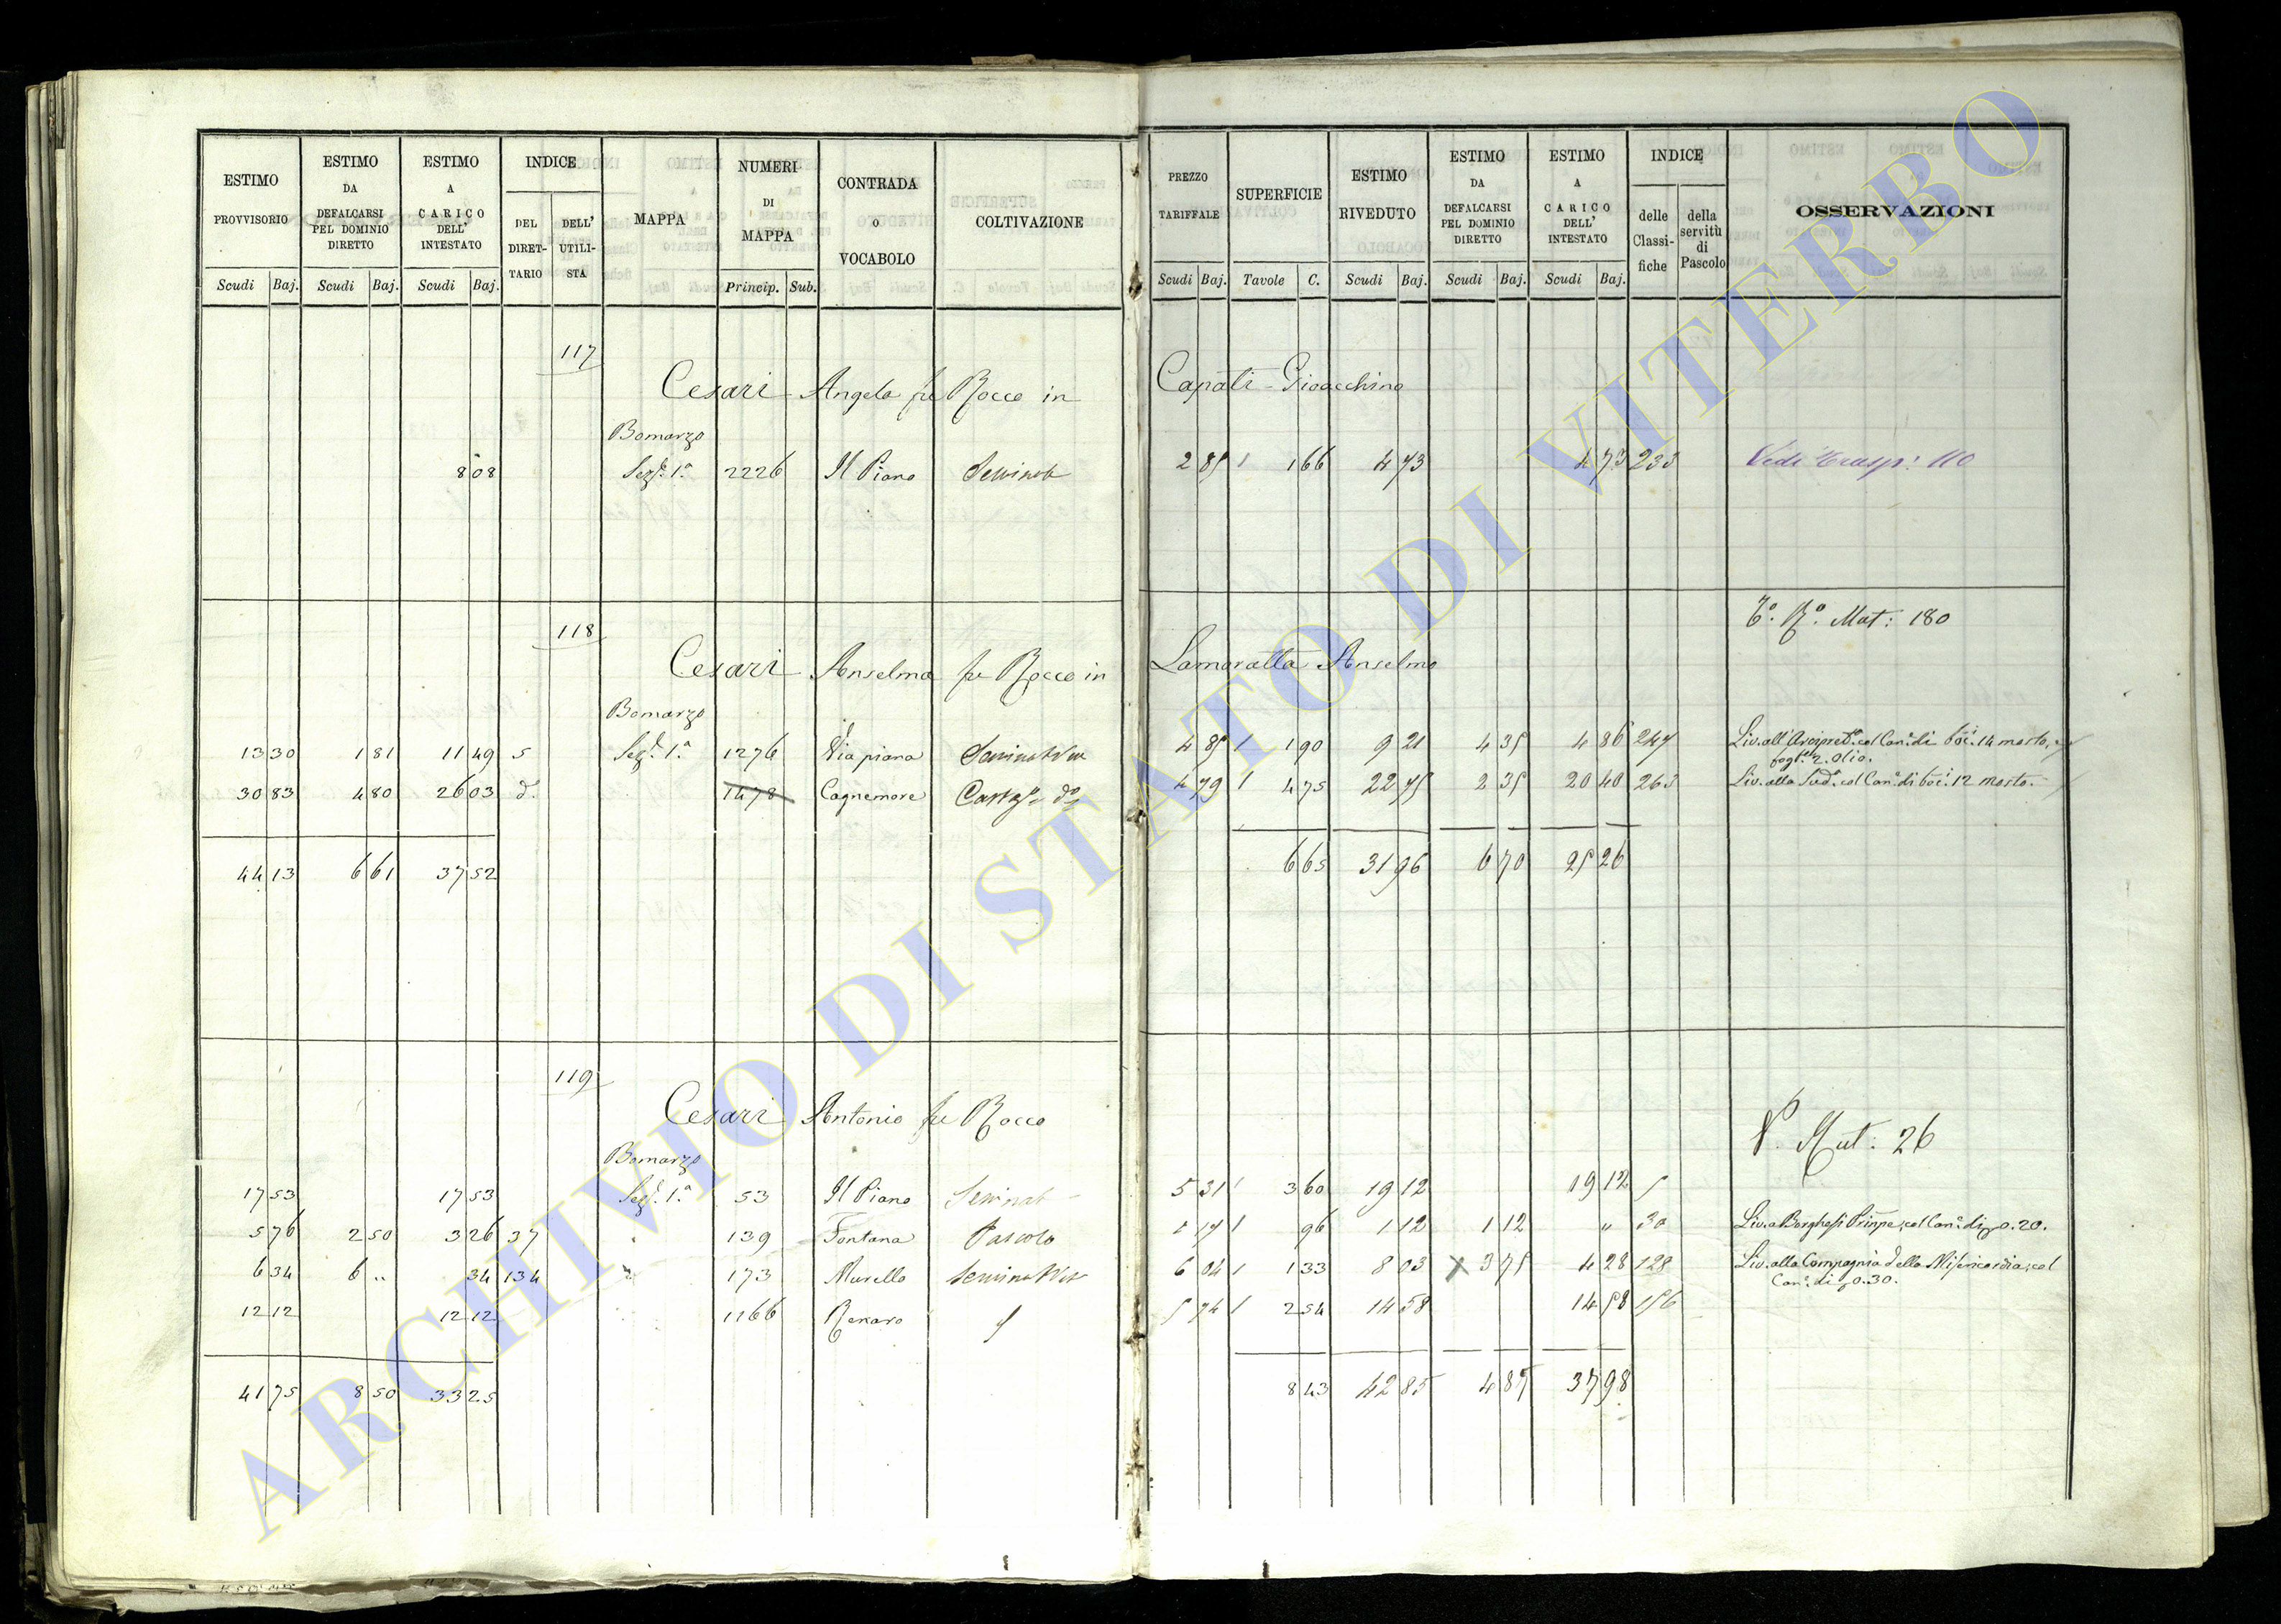 ESTIMO PROVVISORIO Scudi Baj. ESTIMO DA DEFALCARSI PEL DOMINIO DIRETTO Scudi Baj. ESTIMO A CARICO DELL' INTESTATO Scudi Baj. INDICE DEL DIRET-TARIO DELL' UTILI-STA MAPPA NUMERI DI MAPPA Princip. Sub. CONTRADA O VOCABOLO COLTIVAZIONE PREZZO TARIFFALE Scudi Baj. SUPERFICIE Tavole C. ESTIMO RIVEDUTO Scudi Baj. ESTIMO DA DEFALCARSI PEL DOMINIO DIRETTO Scudi Baj. ESTIMO A CARICO DELL' INTESTATO Scudi Baj. INDICE delle Classi-fiche della servitù di Pascolo OSSERVAZIONI
117
Cesari Angela fu Rocco in Capati Gioacchino
Bomarzo
8 08 Seze. 1.a 2226 Il Piano 2 85 1 66 4 73 4 73 233 Vedi Trasp: 110
118 Mat: 180
Cesari Anselma fu Rocco in Lamoratta Anselmo
Bomarzo
13 30 1 81 11 49 5 Seze. 1.a 1276 Via piana 4 85 1 90 9 21 4 35 4 86 247 Liv. all'Arcipret.e col Can.e di boc. 14 mosto, e fogl.e 2. Olio.
30 83 4 80 26 03 d. 1478 Cagnemore 4 79 4 75 22 75 2 35 20 40 263 Liv. alla Sud.a col Can.e di boc. 12 mosto.
44 13 6 61 37 52 6 65 31 96 6 70 25 26
119
Cesari Antonio fu Rocco V. Mut: 26
Bomarzo
17 53 17 53 Seze. 1.a 53 Il Piano Seminat 5 31 3 60 19 12 19 12 5
5 76 2 50 3 26 37 139 Fontana Pascolo 1 17 96 1 12 1 12 " 30 Liv. a Borghesi Prinpe; col Can.e di 0.20.
6 34 6 " 34 134 173 Murella 6 04 1 33 8 03 3 75 4 28 128 Liv. alla Compagnia della Misericordia; col Can.e di 0.30.
12 12 12 12 1166 Renaro 5 74 2 54 14 58 14 58 156
41 75 8 50 33 25 8 43 42 85 4 87 37 98
ARCHIVIO DI STATO DI VITERBO